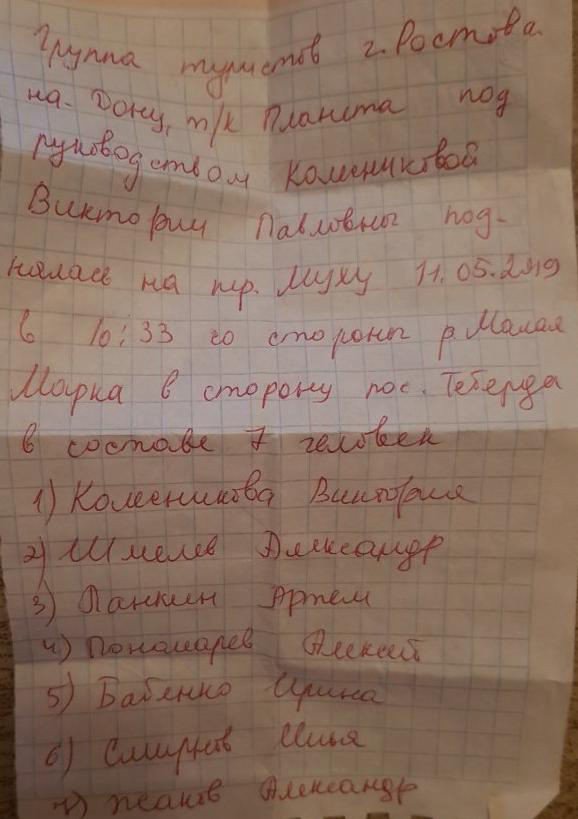 Группа туристов г. Ростова-
на-Дону, т/к Планета под
руководством Колесниковой
Виктории Павловны под-
нялась на пер. Муху 11.05.2019
в 10:33 со стороны р. Малая
Марка в сторону пос. Теберда
в составе 7 человек
1) Колесникова Виктория
2) Шмелев Александр
3) Панкин Артем
4) Пономарев Алексей
5) Бабенко Ирина
6) Смирнов Илья
7) Жаков Александр